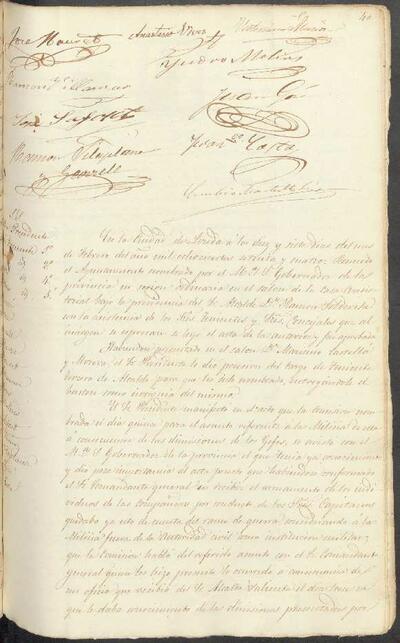 40
José Mauret Anastasio Vives
Ysidro Molins
Juan Gó
José Sufort
Juan Costa
Ramon Vilaplana
y Gonzalo
SS.
Presidente
En la Ciudad de Lerida á los diez y siete dias del mes
de Febrero del año mil ochocientos setenta y cuatro: Reunido
el Ayuntamiento nombrado por el M. Y. S. Gobernador de la
provincia en sesion ordinaria en el salon de la Casa Consis-
torial bajo la presidencia del Sr. Alcalde Dn. Ramon Soldevila
con la asistencia de los Sres. Tenientes y Sres. Concejales que al
margen se espresan se leyó el acta de la anterior y fué aprobada.
Habiendose presentado en el salon D. Mariano Castells
y Moreso el Sr. Presidente le dió posesion del cargo de Teniente
tercero de Alcalde para que ha sido nombrado entregandole el
baston como insignia del mismo.
El Sr. Presidente manifestó en el acto que la Comision nom-
brada el dia quince para el asunto referente á la Milicia de esta
á consecuencia de las dimisiones de los Gefes, se avistó con el
M. Y. S. Gobernador de la provincia el que tenia ya conocimiento
y dió
el Sr. Comandante general en recibir el armamento de los indi-
viduos de las compañias por conducto de los Sres. Capitanes
quedaba ya esto de cuenta del ramo de guerra considerando á la
Milicia fuera de la Autoridad civil como institucion militar; y
que la Comision habló del referido asunto con el Sr. Comandante
general quien les hizo presente lo acordado á consecuencia de
un oficio que recibió del Sr. Alcalde saliente el dia trece en
que le daba conocimiento de las dimisiones presentadas por